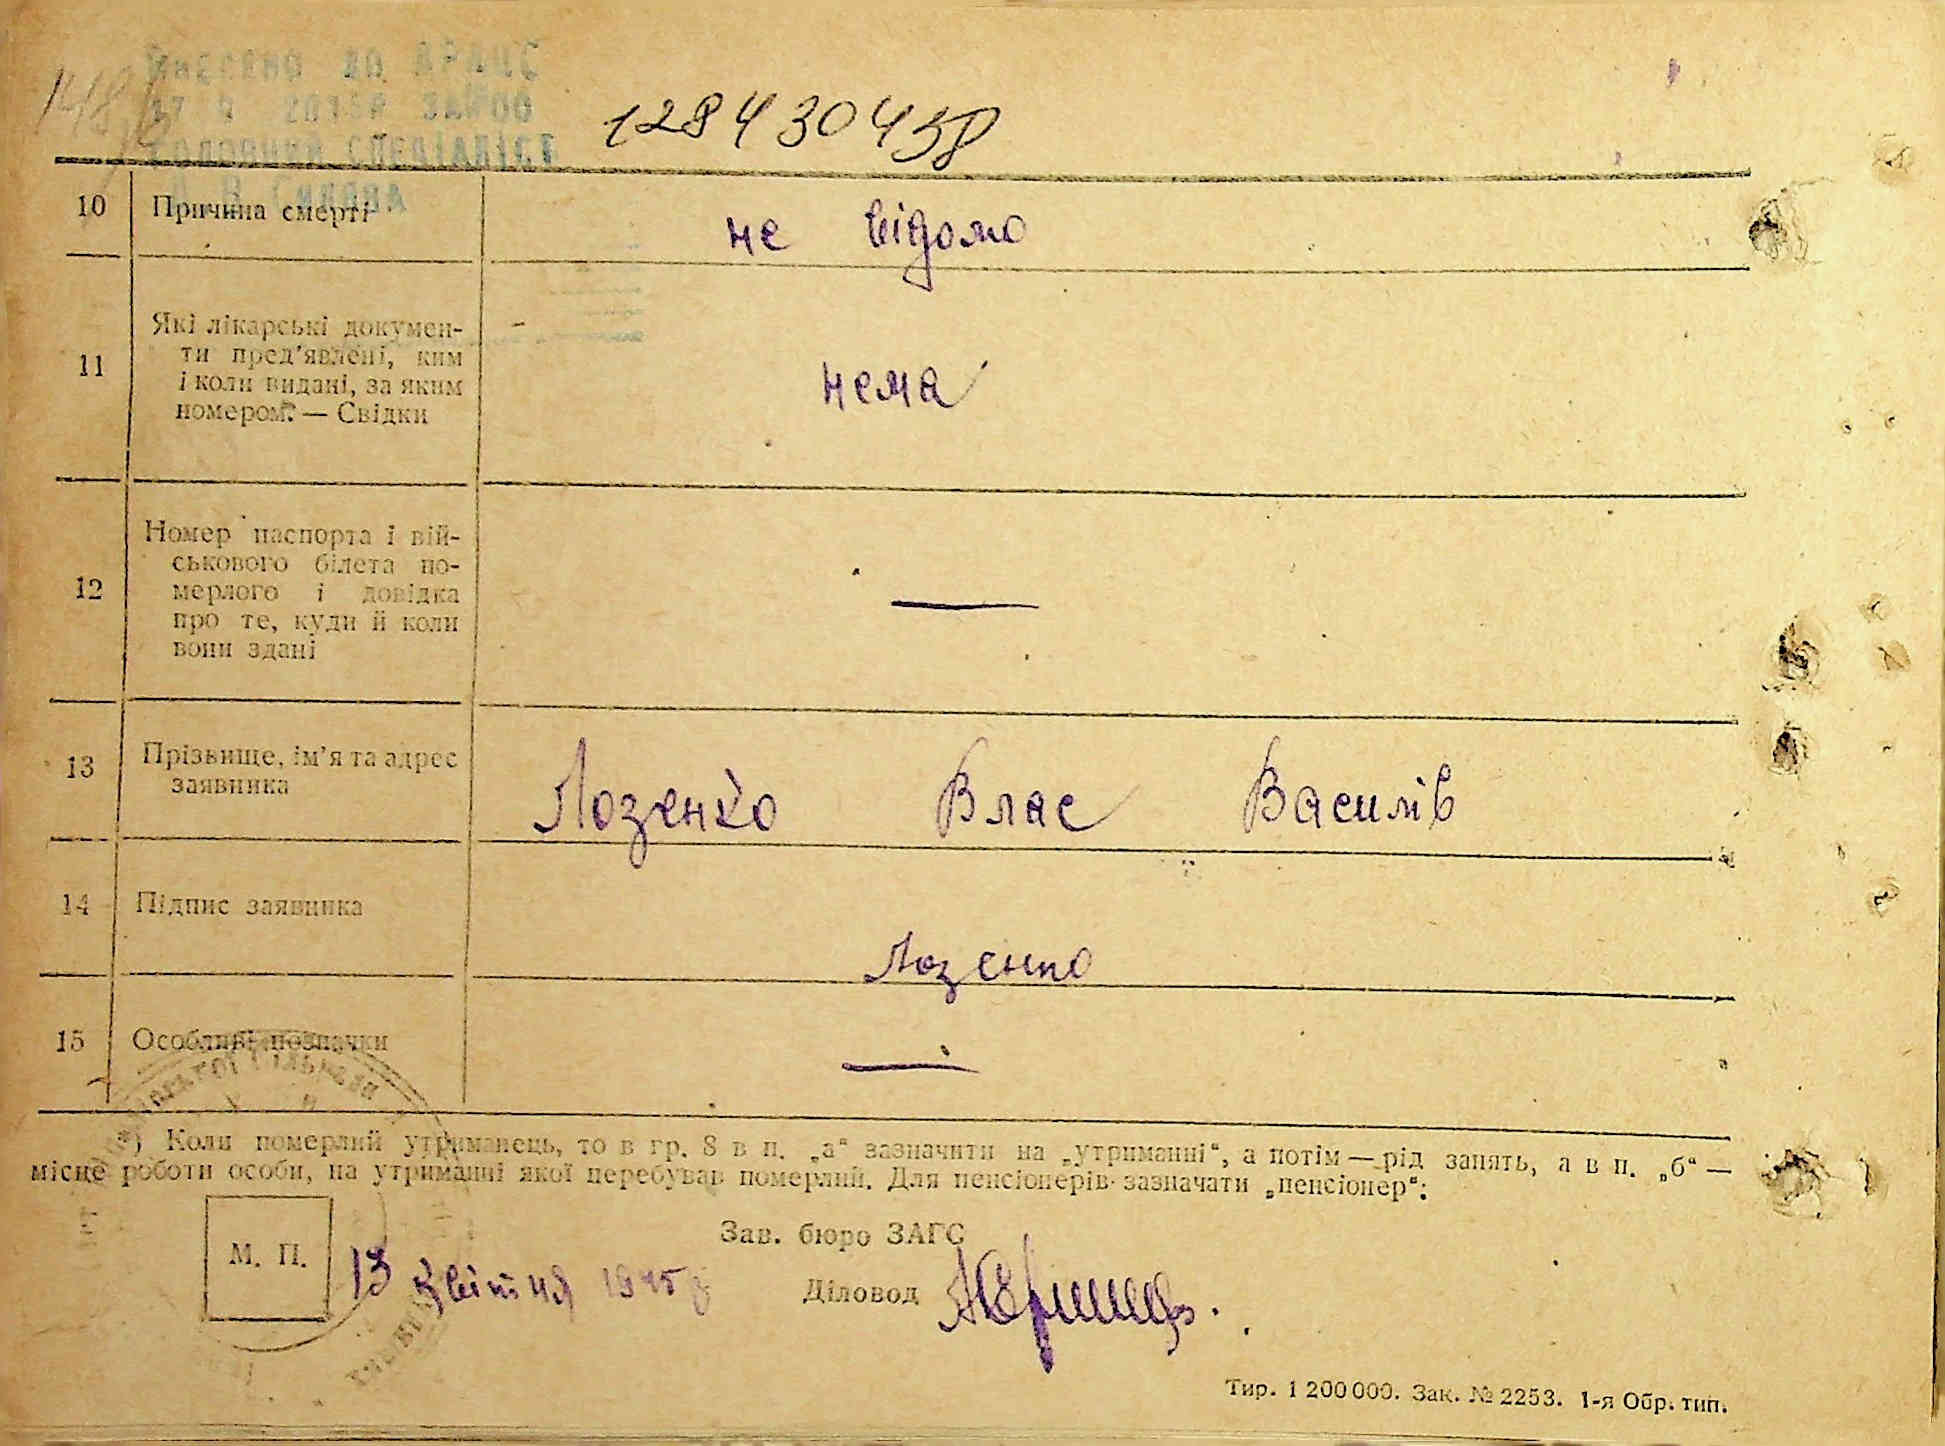 Внесено до АРАЦС
ГОЛОВНИЙ СПЕЦІАЛІСТ
128430438
10 Причина смерті не відомо
11 Які лікарські докумен-
ти пред'явлені, ким
і коли видані, за яким
номером? — Свідки
нема
12 Номер паспорта і вій-
ськового білета по-
мерлого і довідка
про те, куди й коли
вони здані
—
13 Прізвище, ім'я та адрес
заявника
Лозенко Влас Василів
14 Підпис заявника
Лозенко
15 Особливі позначки —
*) Коли померлий утриманець, то в гр. 8 в п. „а“ зазначити на „утриманні“, а потім — рід занять, а в п. „б“ —
місце роботи особи, на утриманні якої перебував померлий. Для пенсіонерів зазначати „пенсіонер“.
Зав. бюро ЗАГС
М. П.
13 квітня 1945 р
Діловод
Тир. 1 200 000. Зак. № 2253. 1-я Обр. тип.